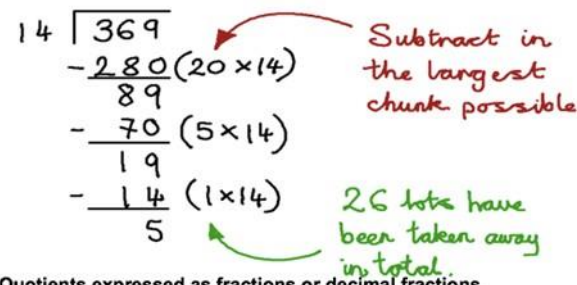 14 369
- 280 (20 × 14)
89
- 70 (5 × 14)
19
- 14 (1 × 14)
5
Subtract in
the largest
chunk possible
26 lots have
been taken away
in total.
Quotients expressed as fractions or decimal fractions